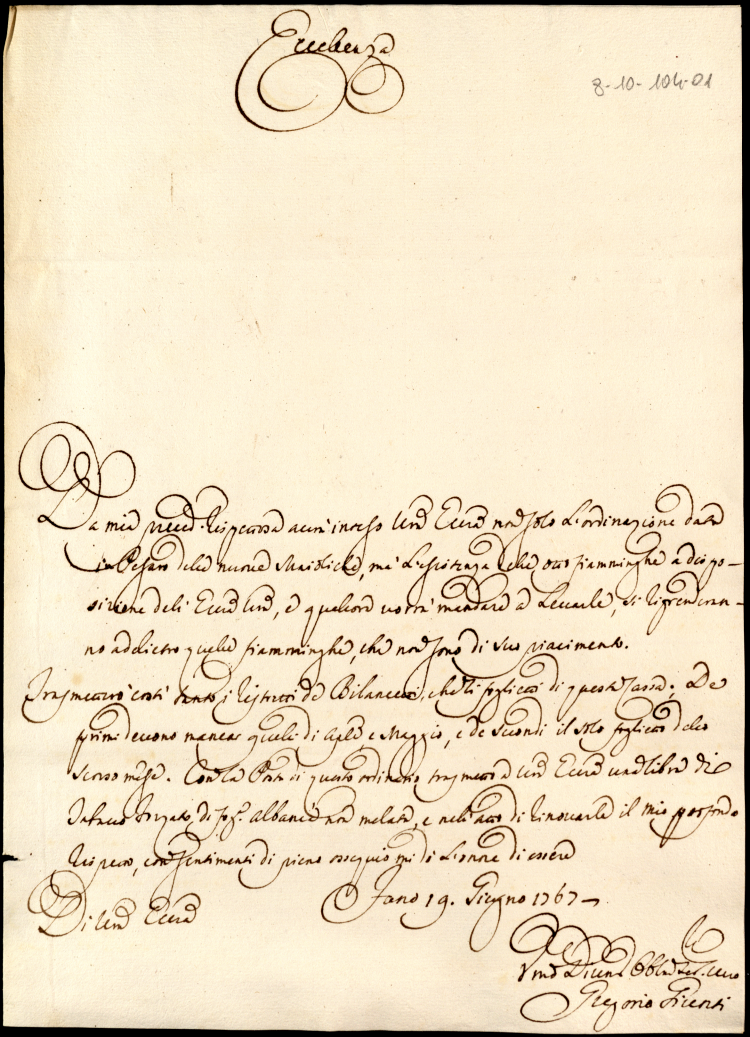 Eccellenza
8-10-104-01
La mia preced. rispettosa avrà inteso Vra Ecca non solo l'ordinazione data
in Pesaro delle nuove Maioliche, mà l'esistenza delle otto fiamminghe a dispo-
sizione dell' Ecca Vra, e qualora vorrà mandare à levarle, si riprenderan-
no addietro quelle fiamminghe, che non sono di suo piacimento.
Trasmetterò costì tanto i ristretti de Bilancetti, che li foglietti di questa Cassa; De
primi devono mancar quelli di Aple, e Maggio, e de secondi il solo foglietto dello
scorso mese. Con la Posta di questo ordinario trasmetto a Vra Ecca una libra di
Tabacco forzato, di fog. Albanìa non melato, e nell'atto di rinovarle il mio profondo
rispetto, con sentimenti di pieno ossequio mi dò l'onore di essere
Di Vra Ecca
Fano 19. Giugno 1767
Vmo Divmo Obblmo
Gregorio